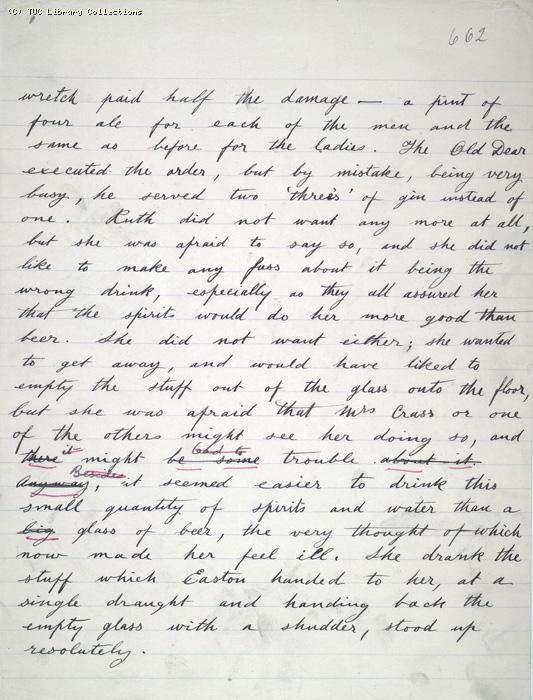 (C) TUC Library Collections
662
wretch paid half the damage — a pint of
four ale for each of the men and the
same as before for the ladies. The Old Dear
executed the order, but by mistake, being very
busy, he served two 'threes' of gin instead of
one. Ruth did not want any more at all,
but she was afraid to say so, and she did not
like to make any fuss about it being the
wrong drink, especially as they all assured her
that the spirits would do her more good than
beer. She did not want either; she wanted
to get away, and would have liked to
empty the stuff out of the glass onto the floor,
but she was afraid that Mrs Crass or one
of the others might see her doing so, and
there it might be some lead to trouble about it.
Anyway, Besides, it seemed easier to drink this
small quantity of spirits and water than a
big glass of beer, the very thought of which
now made her feel ill. She drank the
stuff which Easton handed to her, at a
single draught and handing back the
empty glass with a shudder, stood up
resolutely.